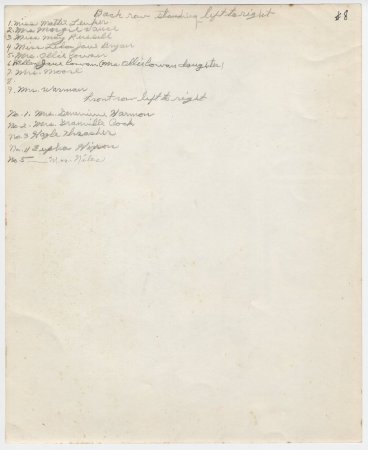 Back row standing left to right
#8
1. Miss Mable
2. Mrs Margie Vance
3 Miss May Russell
4 Miss Jane Bryan
5. Mrs. Ollie Cowan
6 Jane Cowan (Mrs Ollie Cowan daughter)
7 Mrs. Moore
8
9. Mrs. Warman
Front row left to right
No. 1. Mrs. Genevieve Harmon
No. 2. Mrs. Granville Cook
No. 3 Hazle Thrasher
No. 4
No. 5 Mrs.